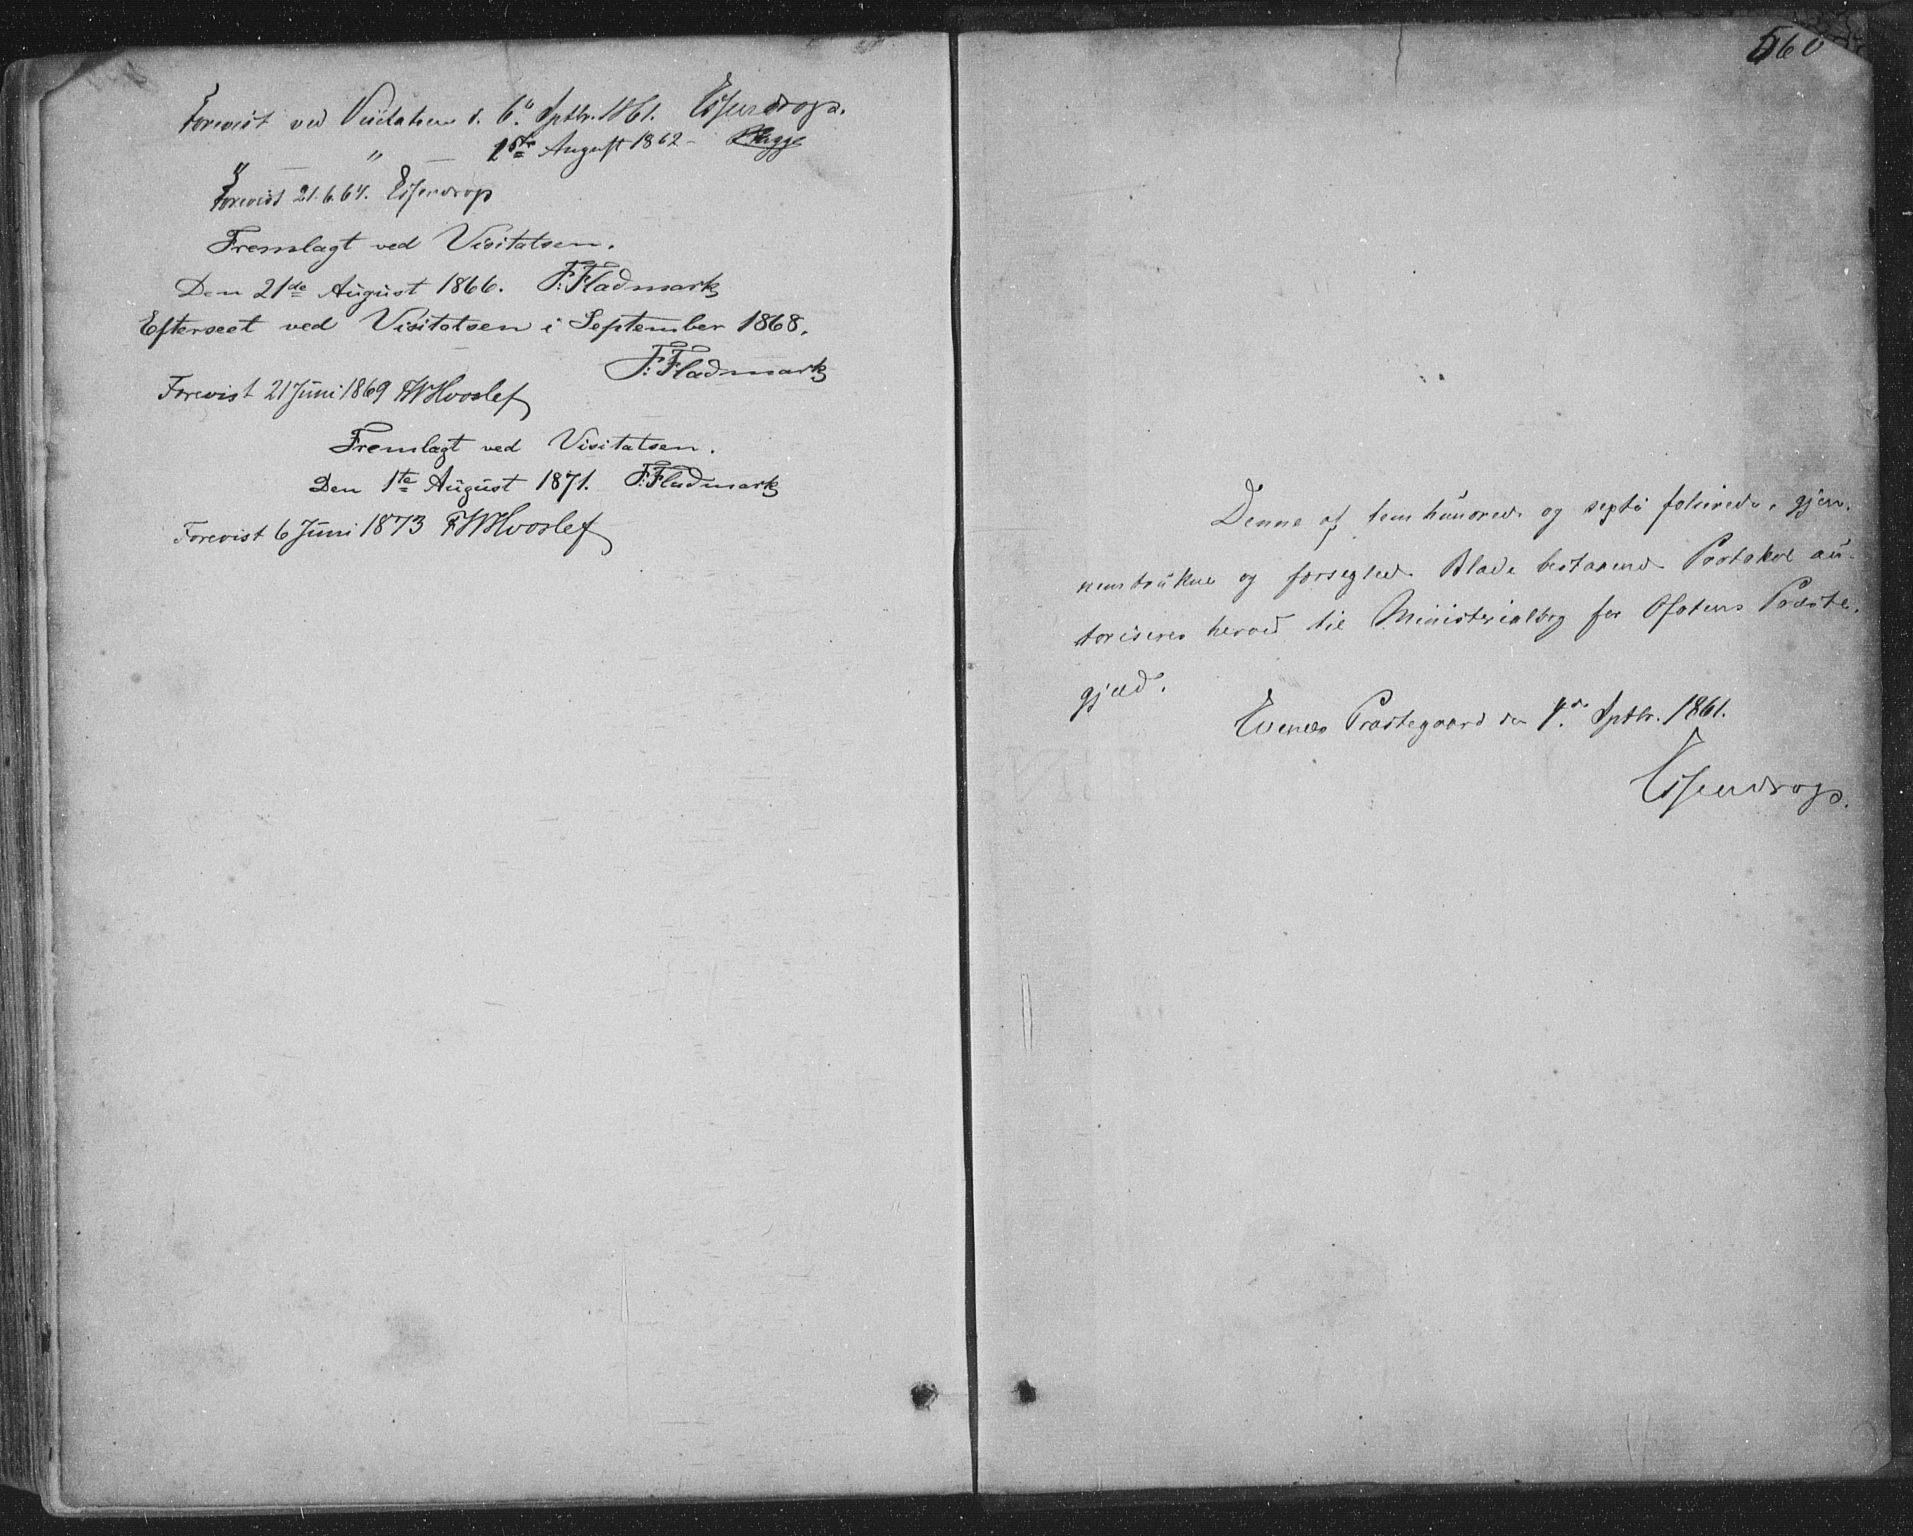 Forevist ved Visitatsen d. 6. Sptbr. 1861. Essendrop.
" — " — 15de August 1862 –
Forevist 21.6.64. Essendrop
Fremlagt ved Visitatsen.
Den 21de August 1866. F. Fladmark
Efterseet ved Visitatsen i September 1868.
F. Fladmark
Forevist 21 Juni 1869 FWHvoslef
Fremlagt ved Visitatsen.
Den 1te August 1871. F. Fladmark
Forevist 6 Juni 1873 FWHvoslef
560
Denne af fem hundrede og sexti folierede, gjen-
nemtrukne og forseglede Blade bestaaende Protokol au-
toriseres herved til Ministerialbog for Ofotens Præste-
gjeld.
Evenæs Præstegaard den 4de Sptbr. 1861.
Essendrop.